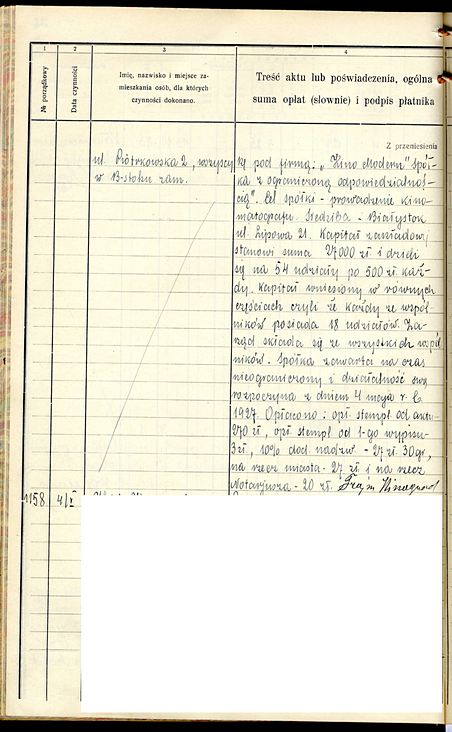 1
2
3
4
№ porządkowy
Data czynności
Imię, nazwisko i miejsce za-
mieszkania osób, dla których
czynności dokonano.
Treść aktu lub poświadczenia, ogólna
suma opłat (słownie) i podpis płatnika
Z przeniesienia
ul. Piotrkowska 2, wszyscy
w B-stoku zam.
pod firmą: „Kino Modern" spół-
ka z ograniczoną odpowiedzialnoś-
cią". Cel spółki - prowadzenie kine-
matografu. Siedziba - Białystok
ul. Lipowa 21. Kapitał zasadowy
stanowi suma 27000 zł i dzieli
się na 54 udziały po 500 zł każ-
dy. Kapitał wniesiony w równych
częściach czyli że każdy ze wspól-
ników posiada 18 udziałów. Za-
rząd składa się ze wszystkich wspól
ników. Spółka zawarta na czas
nieograniczony i działalność swą
rozpoczyna z dniem 4 maja r. b.
1927. Opłacono: opł. stempl od aktu-
270 zł, opł. stempl. od 1-go wypisu-
3 zł, 10% dod. nadzw - 27 zł. 30 gr,
na rzecz miasta - 27 zł i na rzecz
Notarjusza - 20 zł.
1158